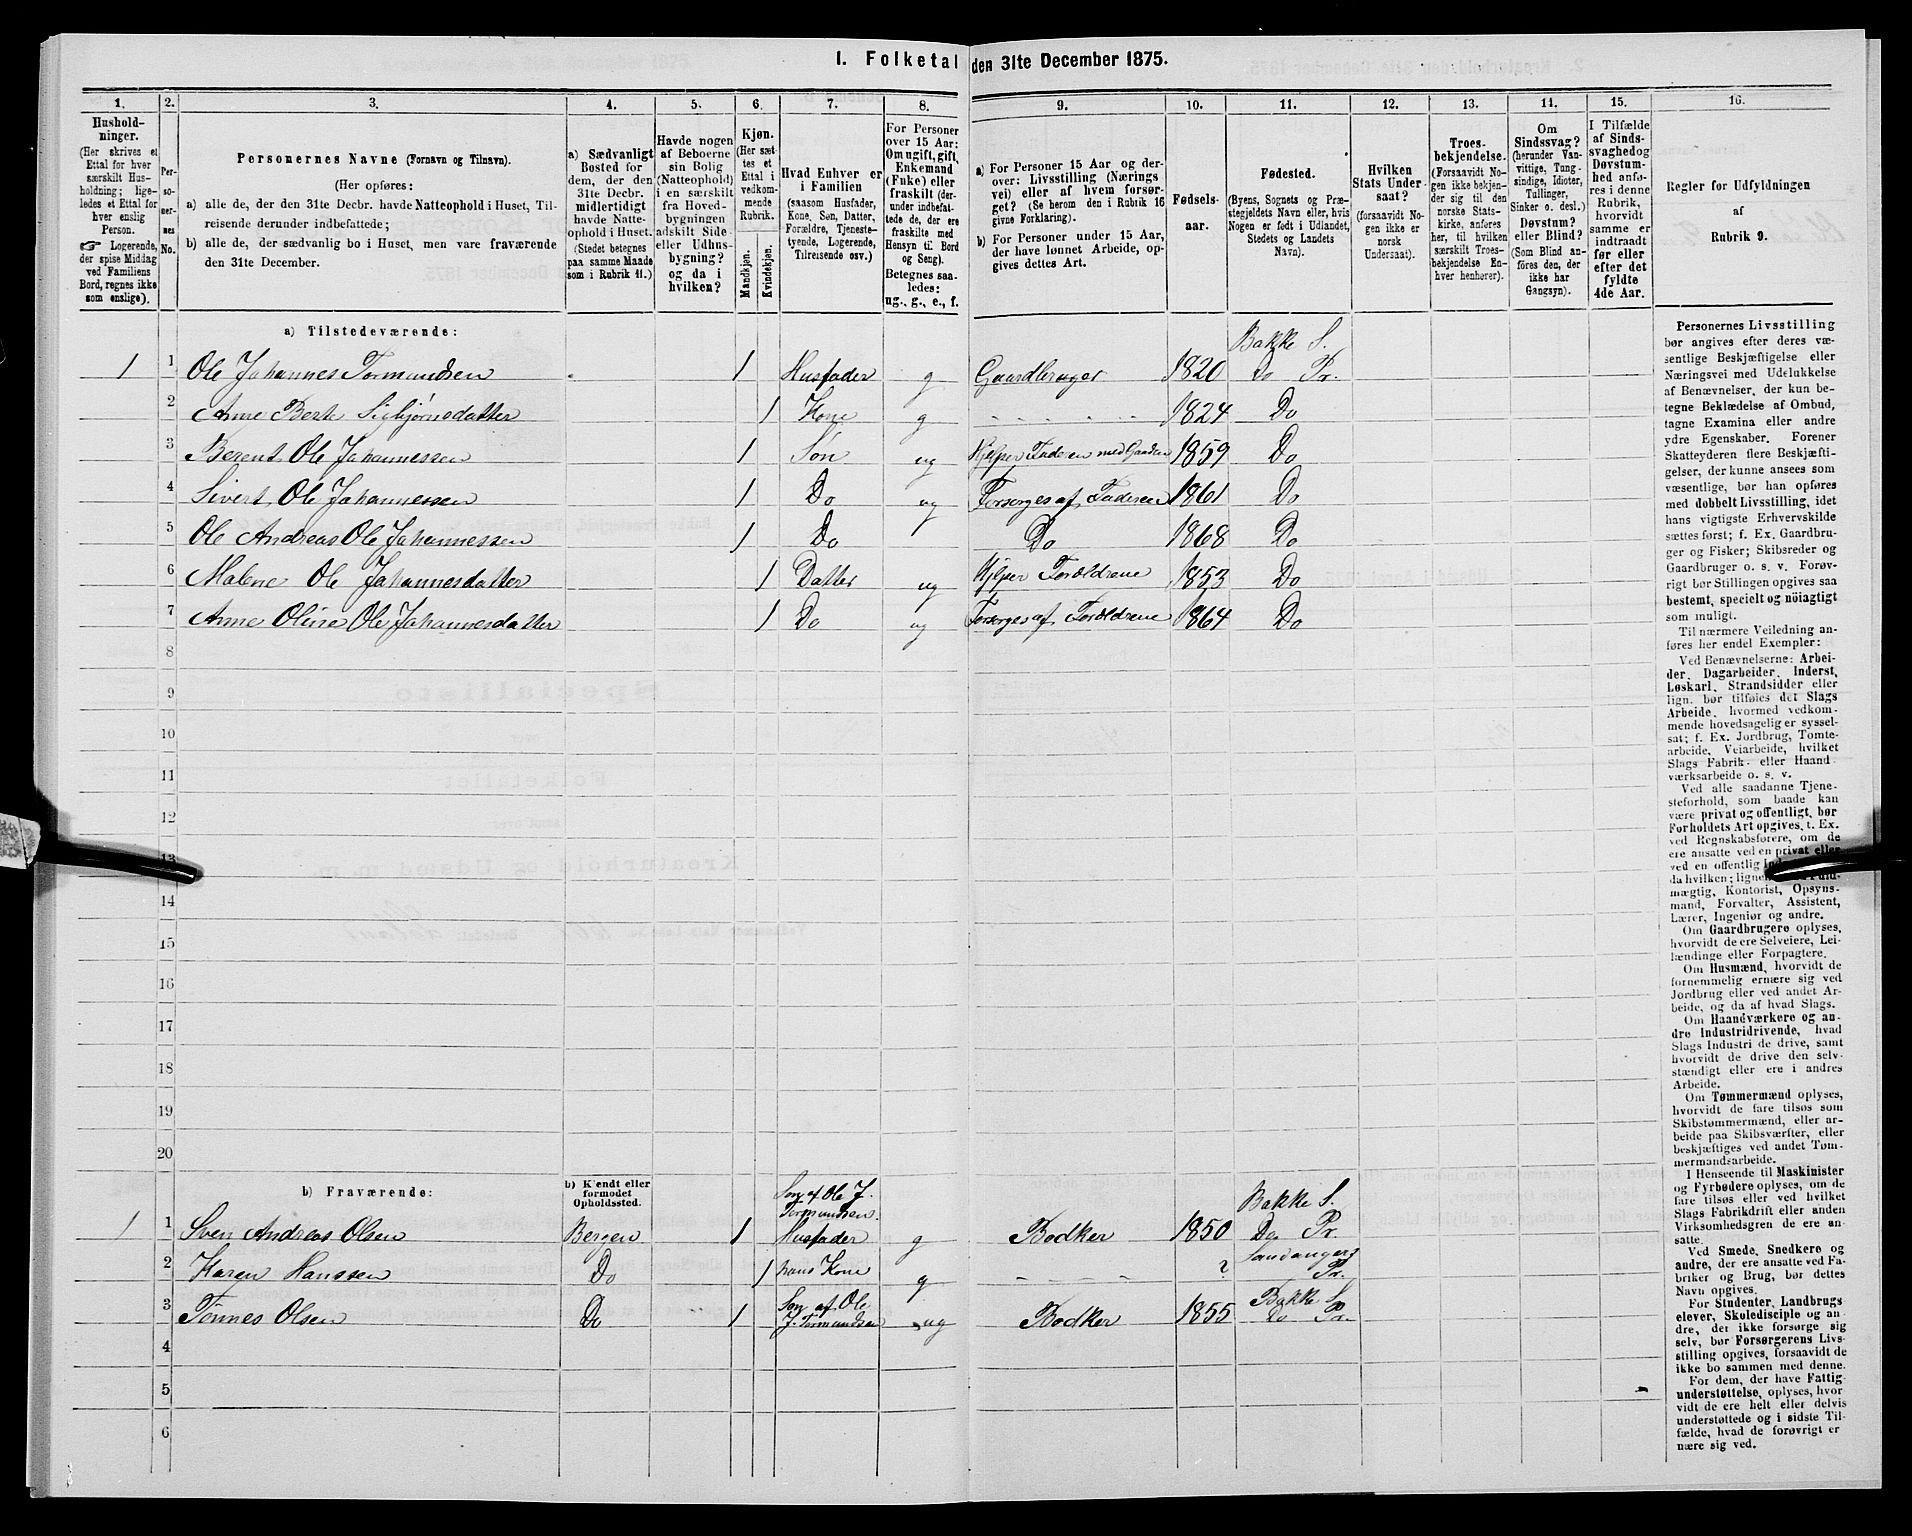 I. Folketal den 31te December 1875.
1. 2. 3. 4. 5. 6. 7. 8. 9. 10. 11. 12. 13. 14. 15. 16.
Hushold-
ninger.
(Her skrives et
Ettal for hver
særskilt Hus-
holdning; lige-
ledes et Ettal for
hver enslig
Person.
☞ Logerende,
der spise Middag
ved Familiens
Bord, regnes ikke
som enslige).
Per-
so-
ner-
nes
No.
Personernes Navne (Fornavn og Tilnavn).
(Her opføres:
a) alle de, der den 31te Decbr. havde Natteophold i Huset, Til-
reisende derunder indbefattede;
b) alle de, der sædvanlig bo i Huset, men vare fraværende
den 31te December.
a) Sædvanligt
Bosted for
dem, der den
31te Decbr.
midlertidigt
havde Natte-
ophold i Huset.
(Stedet betegnes
paa samme Maade
som i Rubrik 11.)
Havde nogen
af Beboerne
sin Bolig
(Natteophold)
i en særskilt
fra Hoved-
bygningen
adskilt Side-
eller Udhus-
bygning?
og da i
hvilken?
Kjøn.
(Her sæt-
tes et
Ettal i
vedkom-
mende
Rubrik.
Mandkjøn.
Kvindekjøn.
Hvad Enhver er
i Familien
(saasom Husfader,
Kone, Søn, Datter,
Forældre, Tjeneste-
tyende, Logerende,
Tilreisende osv.)
For Personer
over 15 Aar:
Om ugift, gift,
Enkemand
(Enke) eller
fraskilt (der-
under indbefat-
tede de, der ere
fraskilte med
Hensyn til Bord
og Seng).
Betegnes saa-
ledes:
ug., g., e., f.
a) For Personer 15 Aar og der-
over: Livsstilling (Nærings
vei) eller af hvem forsør-
get? (Se herom den i Rubrik 16
givne Forklaring).
b) For Personer under 15 Aar,
der have lønnet Arbeide, op-
gives dettes Art.
Fødsels-
aar.
Fødested.
(Byens, Sognets og Præ-
stegjeldets Navn eller, hvis
Nogen er født i Udlandet,
Stedets og Landets
Navn).
Hvilken
Stats Under-
saat?
(forsaavidt No-
gen ikke er
norsk
Undersaat).
Troes-
bekjendelse.
(Forsaavidt No-
gen ikke bekjen-
der sig til den
norske Stats-
kirke, anføres
her, til hvilken
særskilt Troes-
bekjendelse En-
hver henhører).
Om
Sindssvag?
(herunder Van-
vittige, Tung-
sindige, Idioter,
Tullinger,
Sinker o. desl.)
Døvstum?
eller Blind?
(Som Blind an-
føres den, der
ikke har
Gangsyn).
I Tilfælde
af Sinds-
svaghed og
Døvstum-
hed anfø-
res i denne
Rubrik,
hvorvidt
samme er
indtraadt
før eller
efter det
fyldte
4de Aar.
Regler for Udfyldningen
af
Rubrik 9.
a) Tilstedeværende: Bakke S.
1 1 Ole Johannes Tormundsen 1 Husfader g Gaardbruger 1820 Do Pr.
2 Anne Berte Sigbjørnsdatter 1 Kone g 1824 Do
3 Berent Ole Johannessen 1 Søn ug Hjelper Faderen med Gaarden 1859 Do
4 Sivert Ole Johannessen 1 Do ug Forsorges af Faderen 1861 Do
5 Ole Andreas Ole Johannessen 1 Do Do 1868 Do
6 Malene Ole Johannesdatter 1 Datter ug Hjelper Forældrene 1853 Do
7 Anne Oline Ole Johannesdatter 1 Do ug Forsorges af Forældrene 1864 Do
8
9
10
11
12
13
14
15
16
17
18
19
20
b) Fraværende:
b) Kjendt eller
formodet
Opholdssted.
Søn af Ole J.
Tormundsen. Bakke S.
1 1 Sven Andreas Olsen Bergen 1 Husfader g Bødker 1850 Do Pr.
2 Karen Hanssen Do 1 hans Kone g ? Pr.
3 Tønnes Olsen Do 1 Søn af Ole J. Tormundsen ug Bødker 1855 Bakke S. Do Pr.
4
5
6
Personernes Livsstilling
bør angives efter deres væ-
sentlige Beskjæftigelse eller
Næringsvei med Udelukkelse
af Benævnelser, der kun be-
tegne Beklædelse af Ombud,
tagne Examina eller andre
ydre Egenskaber. Forener
Skatteyderen flere Beskjæfti-
gelser, der kunne ansees som
væsentlige, bør han opføres
med dobbelt Livsstilling, idet
hans vigtigste Erhvervskilde
sættes først; f. Ex. Gaardbru-
ger og Fisker; Skibsreder og
Gaardbruger o. s. v. Forøv-
rigt bør Stillingen opgives saa
bestemt, specielt og nøiagtigt
som muligt.
Til nærmere Veiledning an-
føres her endel Exempler:
Ved Benævnelserne: Arbei-
der, Dagarbeider, Inderst,
Løskarl, Strandsidder eller
lign. bør tilføies det Slags
Arbeide, hvormed vedkom-
mende hovedsagelig er syssel-
sat; f. Ex. Jordbrug, Tomte-
arbeide, Veiarbeide, hvilket
Slags Fabrik- eller Haand-
værksarbeide o. s. v.
Ved alle saadanne Tjene-
steforhold, som baade kan
være privat og offentligt, bør
Forholdets Art opgives, t. Ex.
ved Regnskabsførere, om de
ere ansatte ved en privat eller
ved en offentlig
da hvilken;
mægtig, Kontorist, Opsyns-
mand, Forvalter, Assistent,
Lærer, Ingeniør og andre.
Om Gaardbrugere oplyses,
hvorvidt de ere Selveiere, Lei-
lændinge eller Forpagtere.
Om Husmænd, hvorvidt de
fornemmelig ernære sig ved
Jordbrug eller ved andet Ar-
beide, og da af hvad Slags.
Om Haandværkere og an-
dre Industridrivende, hvad
Slags Industri de drive, samt
hvorvidt de drive den selv-
stændigt eller ere i andres
Arbeide.
Om Tømmermænd oplyses,
hvorvidt de fare tilsøs som
Skibstømmermænd, eller ar-
beide paa Skibsværfter, eller
beskjæftiges ved andet Tøm-
mermandsarbeide.
I Henseende til Maskinister
og Fyrbødere oplyses, om de
fare tilsøs eller ved hvilket
Slags Fabrikdrift eller anden
Virksomhedsgren de ere an-
satte.
Ved Smede, Snedkere og
andre, der ere ansatte ved Fa-
briker og Brug, bør dettes
Navn opgives.
For Studenter, Landbrugs-
elever, Skoledisciple og an-
dre, der ikke forsørge sig
selv, bør Forsørgerens Livs-
stilling opgives, forsaavidt de
ikke bo sammen med denne.
For dem, der have Fattig-
understøttelse, oplyses, hvor-
vidt de ere helt eller delvis
understøttede og i sidste Til-
fælde, hvad de forøvrigt er-
nære sig ved.